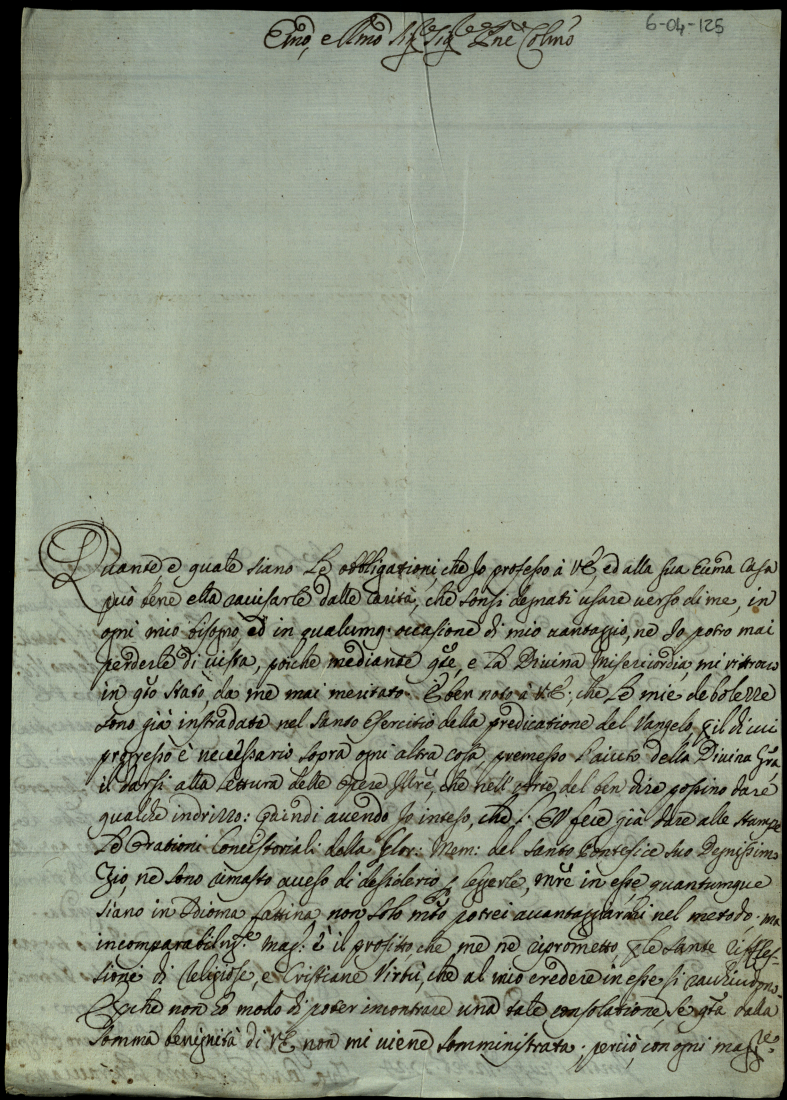 6-04-125
Emō, e Rmō Sig.r Sig.r Pne Colmō
Quante e quale siano Le obbligationi, che Jo professo à VE, ed alla sua Eccma Casa
può bene ella ravisarle dalle carità, che sonsi degnati usare verso di me, in
ogni mio bisogno, ed in qualunq. occasione di mio vantaggio, ne Jo potrò mai
perderle di vista, poiche mediante qste, e La Divina Misericordia, mi ritrovo
in qto stato, da me mai meritato. È ben noto à VE, che Le mie debolezze
sono già instradate nel Santo Esercitio della predicatione del Vangelo, p il di cui
progresso è necessario sopra ogni altra cosa, premesso l'aiuto della Divina Gra
il darsi alla Lettura delle opere, che nell'Arte del ben dire possino dare
qualche indrizzo: Quindi avendo Jo inteso, che VE fece già dare alle stampe
Le Orationi Concistoriali della Glor: Mem: del Santo Pontefice suo Degnissimo
Zio, ne sono rimasto acceso di desiderio p leggerle, mtre in esse quantumque
siano in Idioma Lattina non solo mto potrei avantaggiarmi nel metodo, ma
incomparabilmte mag: è il profitto che me ne riprometto p le Sante rifles-
sione di Religiose, e Cristiane Virtù, che al mio credere in esse si racchiudono.
E pche non hò modo di poter incontrare una tale consolatione, se qta dalla
somma benignità di VE non mi viene somministrata, perciò, con ogni magre